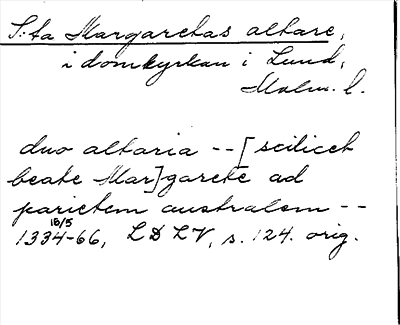 S:ta Margaretas altare,
i domkyrkan i Lund,
Malm. l.
duo altaria -- [scilicet
beate Mar]garete ad
parietem australem --
1334 18/5 -66, LDLV, s. 124. orig.